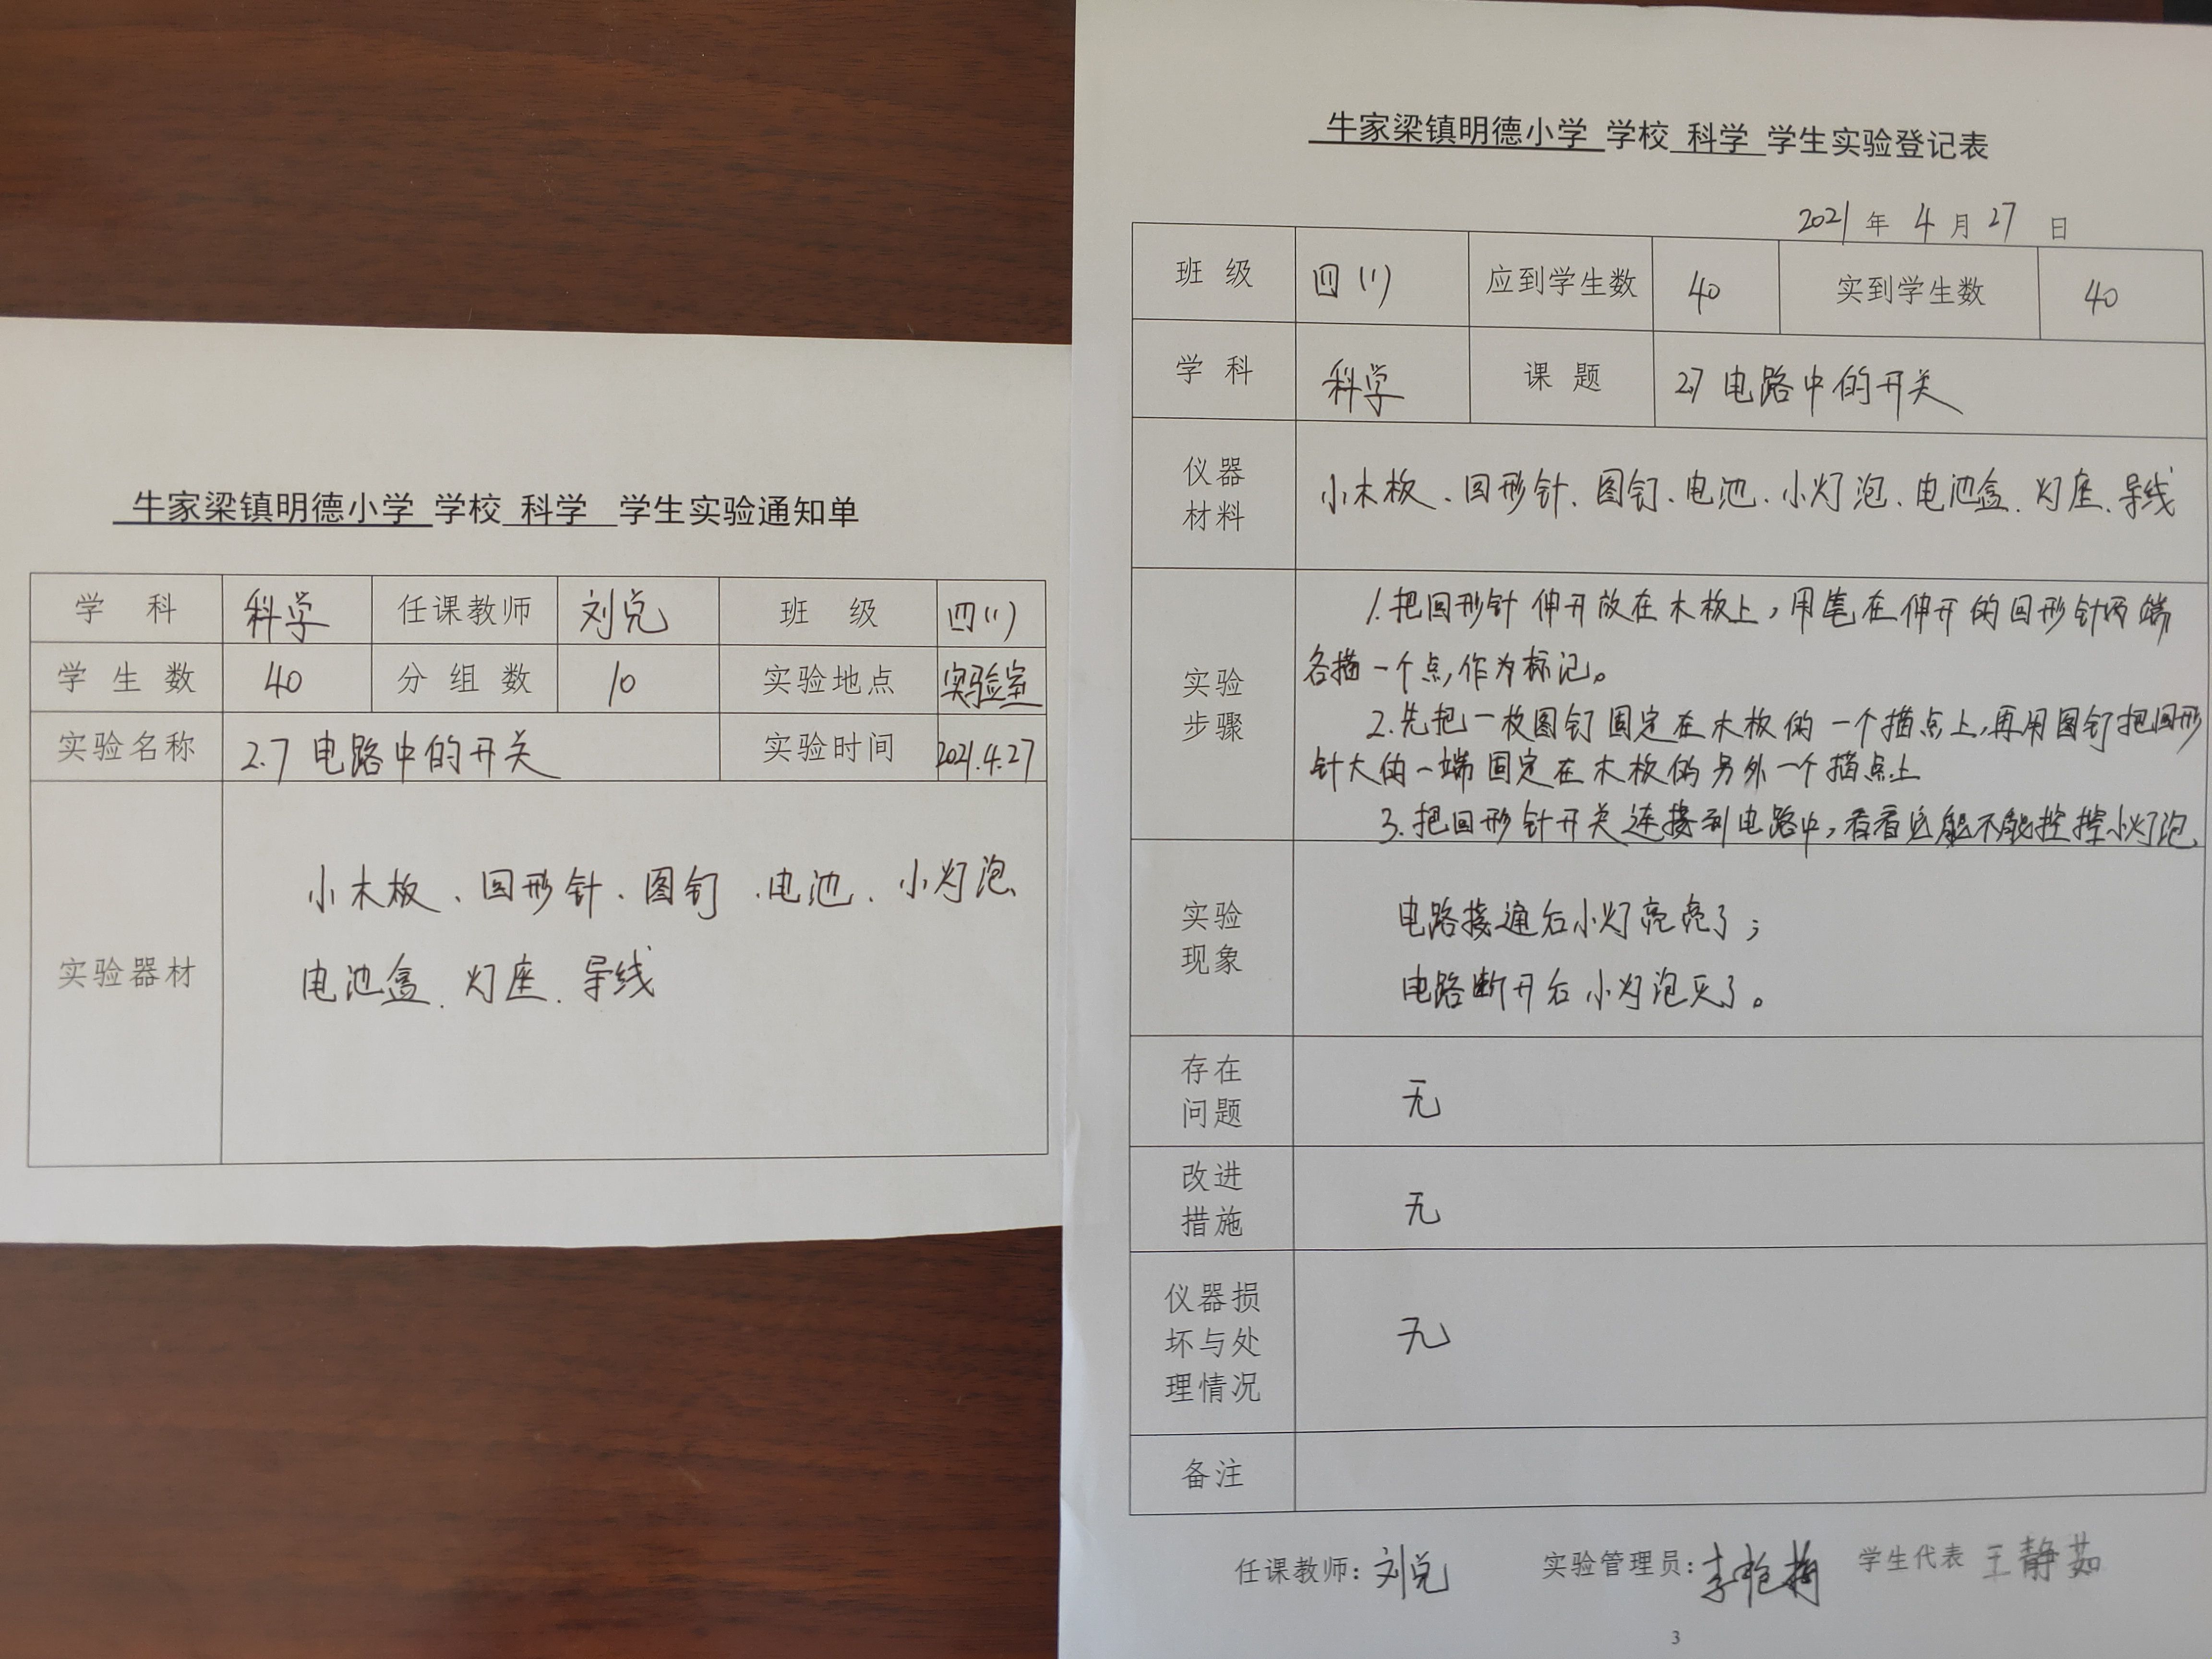 牛家梁镇明德小学 学校 科学 学生实验通知单
学 科 科学 任课教师 刘兑 班 级 四(1)
学 生 数 40 分 组 数 10 实验地点 实验室
实验名称 2.7 电路中的开关 实验时间 2021.4.27
小木板、回形针、图钉、电池、小灯泡
实验器材
电池盒、灯座、导线
牛家梁镇明德小学 学校 科学 学生实验登记表
2021 年 4 月 27 日
班 级 四(1) 应到学生数 40 实到学生数 40
学 科 科学 课 题 2.7 电路中的开关
仪器
材料
小木板、回形针、图钉、电池、小灯泡、电池盒、灯座、导线
实验
步骤
1.把回形针伸开放在木板上,用笔在伸开的回形针两端
各描一个点,作为标记。
2.先把一枚图钉固定在木板的一个描点上,再用图钉把回形
针大的一端固定在木板的另外一个描点上
3.把回形针开关连接到电路中,看看它能不能控控小灯泡
实验
现象
电路接通后小灯亮亮了;
电路断开后小灯泡灭了。
存在
问题
无
改进
措施
无
仪器损
坏与处
理情况
无
备注
任课教师:刘兑 实验管理员:李 学生代表 王静茹
3